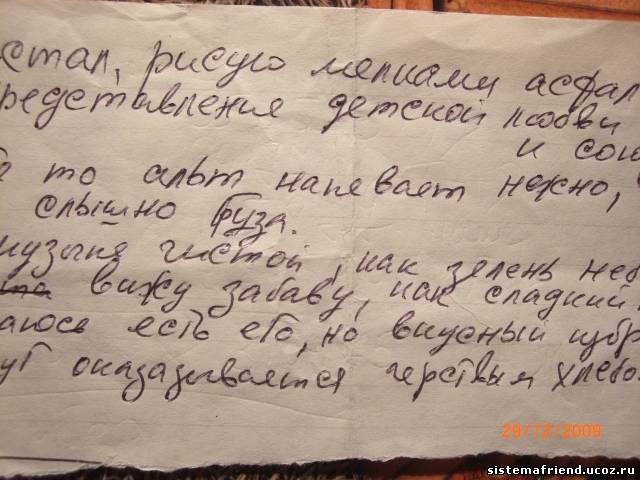 стал, рисую мелками асфал
редставления детской любви
и сою
то альт напевает нежно,
слышно Груза.
музыке чистой, как зелень неб
вижу забаву, как сладкий
аюсь есть его, но вкусный
ут оказазывается черствым хлебо
29/12/2009
sistemafriend.ucoz.ru